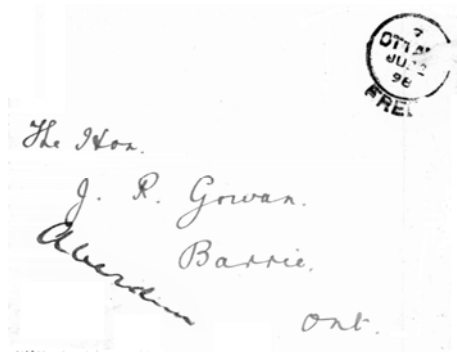 7
OTTAW
JU 2
98
FREE
The Hon.
J. R. Gowan.
Barrie,
Ont.
Aberdeen